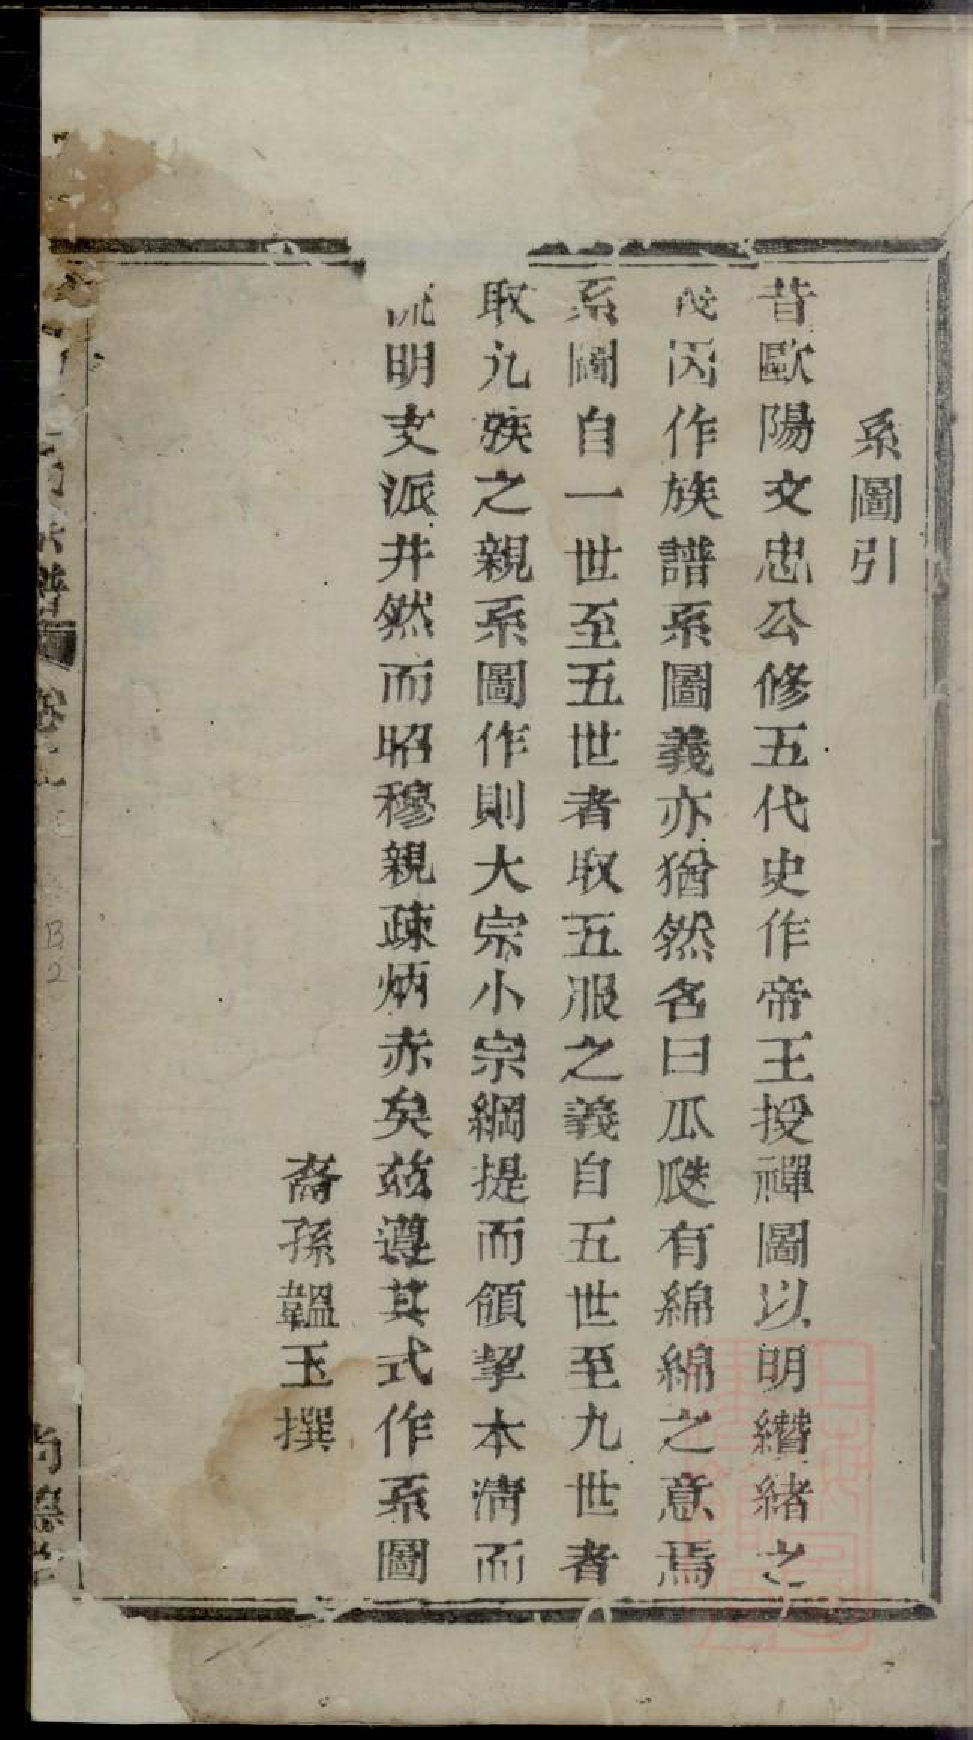 系圖引
昔歐陽文忠公修五代史作帝王授禪圖以明纘緒之
茂因作族譜系圖義亦猶然名曰瓜瓞有綿綿之意焉
系圖自一世至五世者取五服之義自五世至九世者
取九族之親系圖作則大宗小宗綱提而領挈本清而
流明支派井然而昭穆親疎炳赤矣茲遵其式作系圖
裔孫韞玉撰
譜
B2